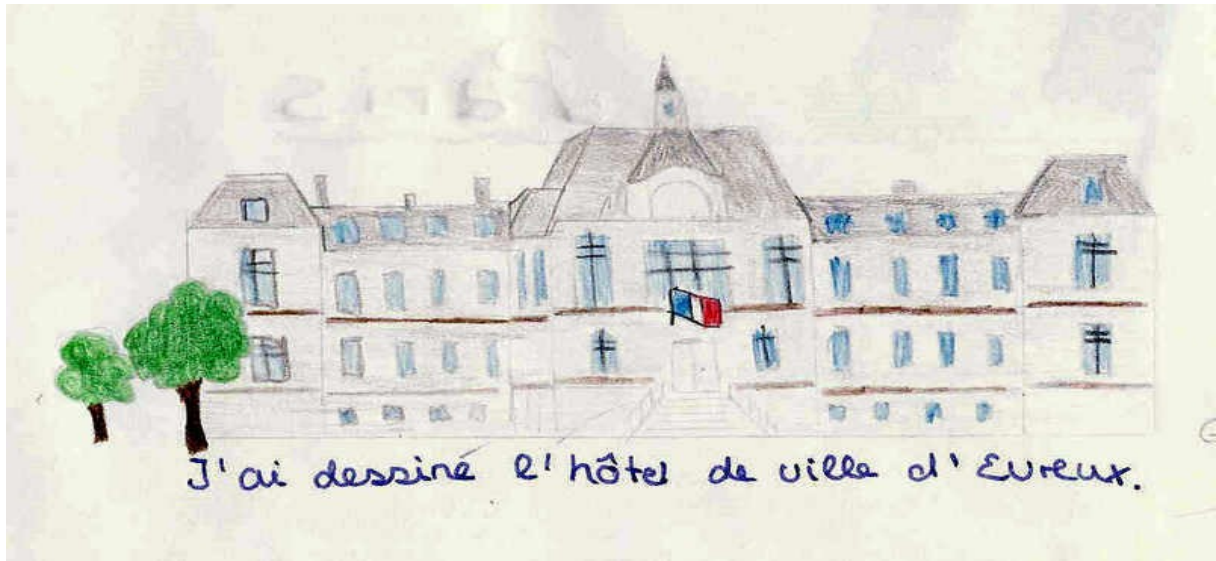 J'ai dessiné l'hôtel de ville d'Evreux.